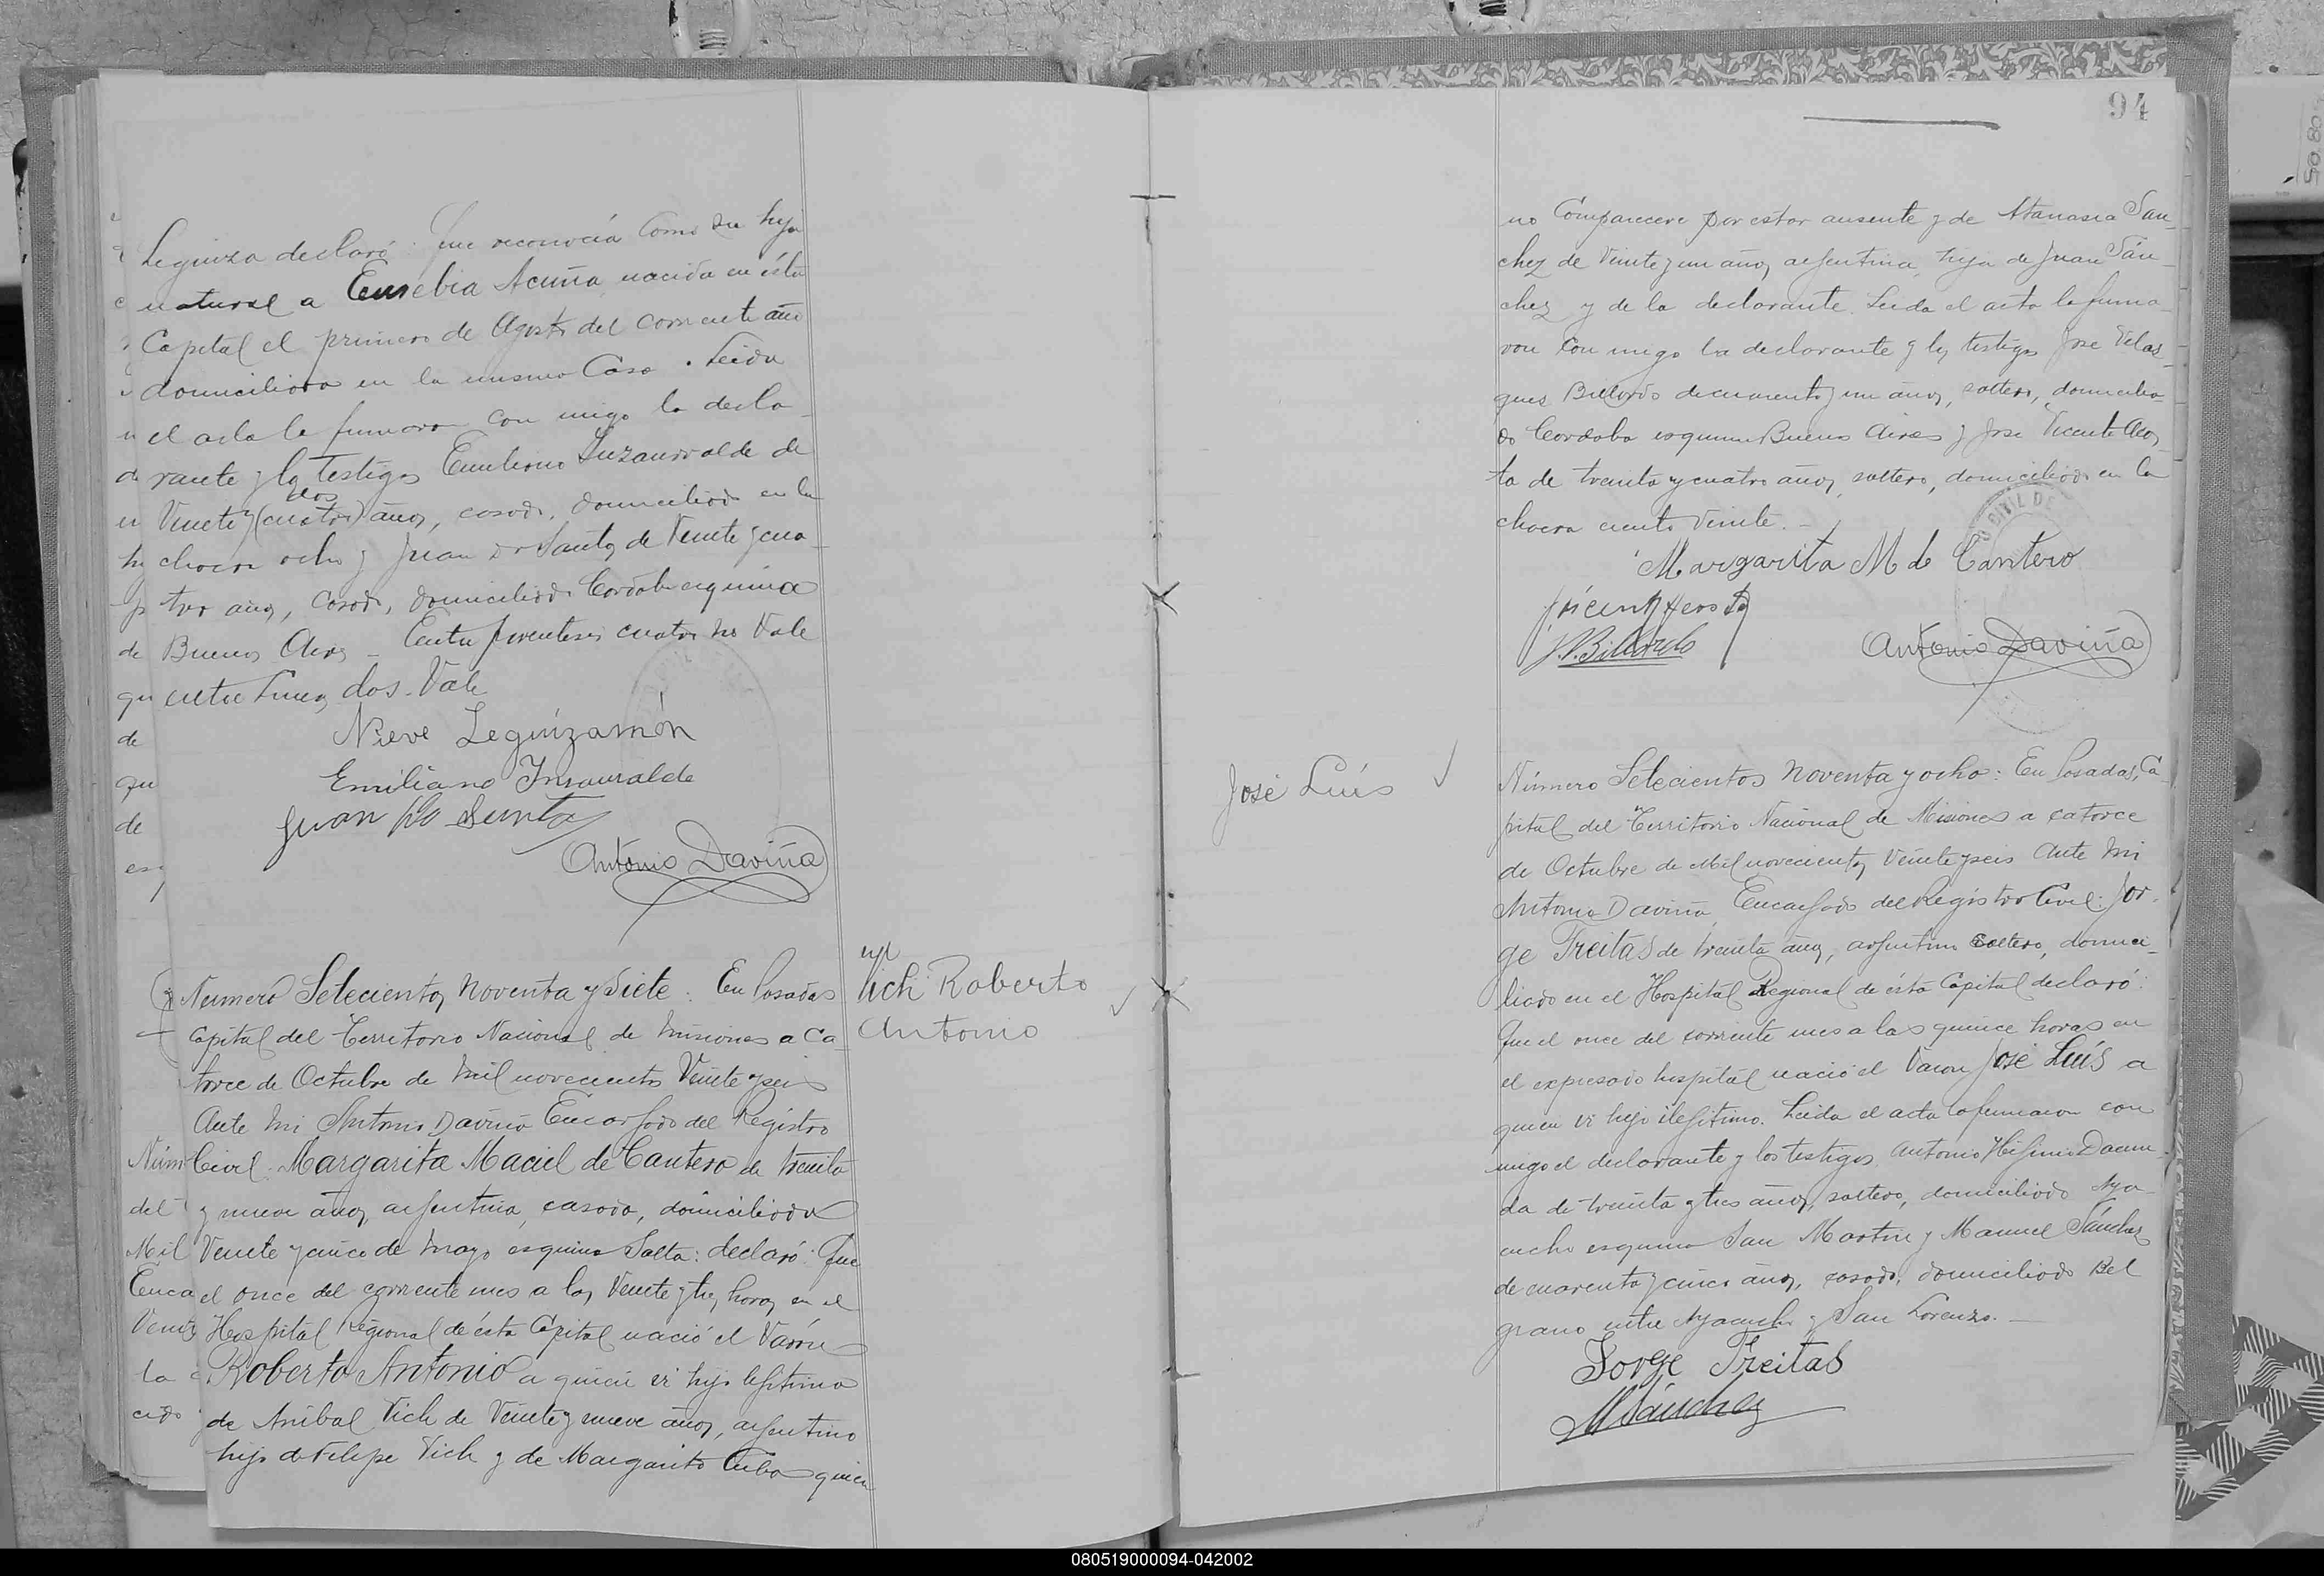 Leguiza declaró: Que reconocía como su hija
natural a Eusebia Acuña, nacida en ésta
Capital el primero de Agosto del corriente año
domiciliada en la misma Casa. Leida
el acta la firmaron con migo la decla
rante y los testigos Emiliano Inzaurralde de
dos
Veinte y (cuatro) años, casado, domiciliado en la
chacra ocho y Juan Do Santos de Veinte y cua
tro años, casado, domiciliado Cordoba esquina
de Buenos Aires – Entre parentesis cuatro no Vale
entre lineas dos. Vale
Nieve Leguizamón
Emiliano Insauralde
Juan Do Santos
Antonio Daviña
Número Setecientos noventa y siete: En Posadas
Capital del Territorio Nacional de Misiones a Ca
torce de Octubre de mil novecientos Veinte y seis
Ante mi Antonio Daviña Encargado del Registro
Civil: Margarita Maciel de Cantero de treinta
y nueve años, argentina, casada, domiciliada
Veinte y cinco de Mayo esquina Salta: declaró: Que
el once del corriente mes a las Veinte y tres horas en el
Hospital Regional de ésta Capital nació el Varón
Roberto Antonio a quien vi hijo legitimo
de Anibal Vich de Veinte y nueve años, argentino
hijo de Felipe Vich y de Margarita quien
Vich Roberto
Antonio
94
no Comparecere por estar ausente y de Atanasia San
chez de Veinte y un años, argentina, hija de Juan Sán
chez y de la declarante. Leida el acta la firma
ron con migo la declarante y los testigos José Velas
ques Bilardo de cuarenta y un años, soltero, domicilia
do Cordoba esquina Buenos Aires y José Vicente Acos
ta de treinta y cuatro años, soltero, domiciliado en la
chacra ciento Veinte. –
Margarita M de Cantero
J. V. Bilardo
Antonio Daviña
José Luís
Número Setecientos noventa y ocho: En Posadas, Ca
pital del Territorio Nacional de Misiones a catorce
de Octubre de Mil novecientos Veinte y seis Ante mi
Antonio Daviña Encargado del Registro Civil: Jor
ge Freitas de treinta años, argentino soltero, domici
liado en el Hospital Regional de ésta Capital declaró:
Que el once del corriente mes a las quince horas en
el expresado hospital nació el Varon José Luís a
quien vi hijo ilegitimo. Leida el acta la firmaron con
migo el declarante y los testigos Antonio Higinio
da de treinta y tres años, soltero, domiciliado Aya
cucho esquina San Martin y Manuel Sánchez
de cuarenta y cinco años, casado, domiciliado Bel
grano entre Ayacucho y San Lorenzo. –
Jorge Freitas
M Sánchez
080519000094-042002